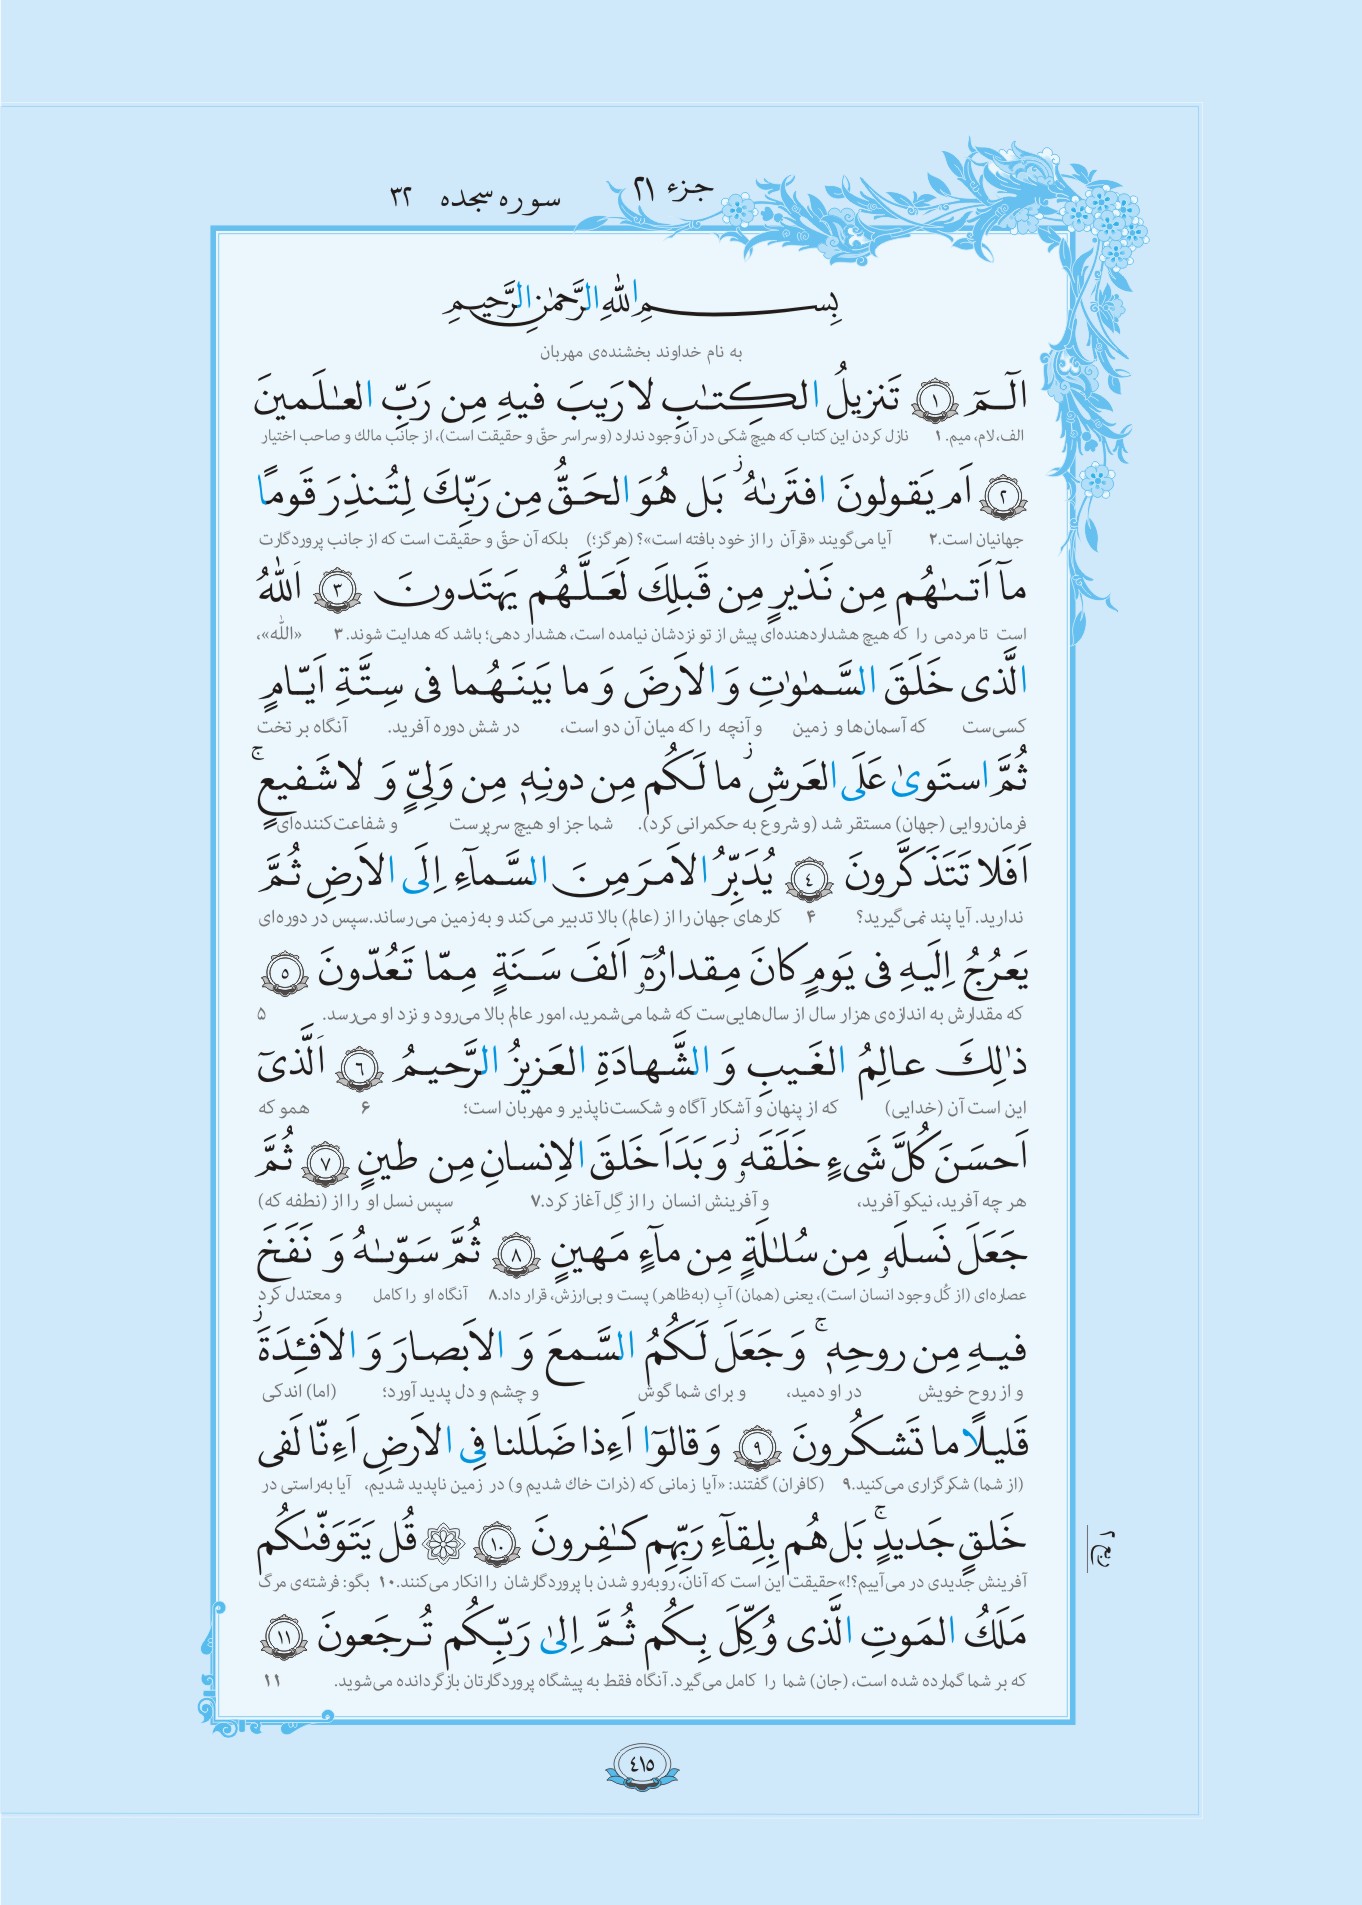 جزء ٢١
سوره سجده ٣٢
بِسمِ اللّٰهِ الرَّحمٰنِ الرَّحیمِ
به نام خداوند بخشنده‌ی مهربان
الٓـمٓ ١ تَنزیلُ الکِتٰبِ لا رَیبَ فیهِ مِن رَبِّ العٰـلَمینَ
الف، لام، میم. ۱ نازل کردن این کتاب که هیچ شکی در آن وجود ندارد (و سراسر حقّ و حقیقت است)، از جانب مالك و صاحب اختیار
٢ اَم یَقولونَ افتَرىٰهُ ز بَل هُوَ الحَقُّ مِن رَبِّكَ لِتُنذِرَ قَومًا
جهانیان است.۲ آیا می‌گویند «قرآن را از خود بافته است»؟ (هرگز؛) بلکه آن حقّ و حقیقت است که از جانب پروردگارت
مآ اَتىٰـهُم مِن نَذیرٍ مِن قَبلِكَ لَعَـلَّـهُم یَهتَدونَ ٣ اَللّٰهُ
است تا مردمی را که هیچ هشداردهنده‌ای پیش از تو نزدشان نیامده است، هشدار دهی؛ باشد که هدایت شوند. ۳ «الله»،
الَّذی خَلَقَ السَّمٰوٰتِ وَ الاَرضَ وَ ما بَینَـهُما فی سِتَّةِ اَیّـامٍ
کسی‌ست که آسمان‌ها و زمین و آنچه را که میان آن دو است، در شش دوره آفرید. آنگاه بر تخت
ثُمَّ استَوىٰ عَلَى العَرشِ ز ما لَکُم مِن دونِهٖ مِن وَلِیٍّ وَ لا شَفیعٍ ج
فرمان‌روایی (جهان) مستقر شد (و شروع به حکمرانی کرد). شما جز او هیچ سرپرست و شفاعت‌کننده‌ای
اَفَلا تَتَذَکَّرونَ ٤ یُدَبِّرُ الاَمرَ مِنَ السَّمآءِ اِلَى الاَرضِ ثُمَّ
ندارید. آیا پند نمی‌گیرید؟ ۴ کارهای جهان را از (عالم) بالا تدبیر می‌کند و به زمین می‌رساند.سپس در دوره‌ای
یَعرُجُ اِلَیهِ فی یَومٍ کانَ مِقدارُهٗٓ اَلفَ سَـنَةٍ مِمّا تَعُدّونَ ٥
که مقدارش به اندازه‌ی هزار سال از سال‌هایی‌ست که شما می‌شمرید، امور عالم بالا می‌رود و نزد او می‌رسد. ۵
ذٰلِكَ عالِمُ الغَیبِ وَ الشَّهادَةِ العَزیزُ الرَّحیمُ ٦ اَلَّذیٓ
این است آن (خدایی) که از پنهان و آشکار آگاه و شکست‌ناپذیر و مهربان است؛ ۶ همو که
اَحسَنَ کُلَّ شَیءٍ خَلَقَهٗ ز وَ بَدَاَ خَلقَ الاِنسانِ مِن طینٍ ٧ ثُمَّ
هر چه آفرید، نیکو آفرید، و آفرینش انسان را از گِل آغاز کرد.۷ سپس نسل او را از (نطفه که)
جَعَلَ نَسلَهٗ مِن سُلٰـلَةٍ مِن مآءٍ مَهینٍ ٨ ثُمَّ سَوّىٰهُ وَ نَفَخَ
عصاره‌ای (از کُل وجود انسان است)، یعنی (همان) آبِ (به‌ظاهر) پست و بی‌ارزش، قرار داد.۸ آنگاه او را کامل و معتدل کرد
فیـهِ مِن روحِهٖ ج وَ جَعَلَ لَکُمُ السَّمعَ وَ الاَبصارَ وَ الاَفـِٔدَةَ ز
و از روح خویش در او دمید، و برای شما گوش و چشم و دل پدید آورد؛ (اما) اندکی
قَلیـلًا ما تَشـکُرونَ ٩ وَ قالوٓا اَءِذا ضَلَلنا فِی الاَرضِ اَءِنّا لَفی
(از شما) شکرگزاری می‌کنید.۹ (کافران) گفتند: «آیا زمانی که (ذرات خاك شدیم و) در زمین ناپدید شدیم، آیا به‌راستی در
خَلقٍ جَدیدٍ ج بَل هُم بِلِقآءِ رَبِّهِم کـٰفِرونَ ١٠ قُل یَتَوَفّىٰکُم
آفرینش جدیدی در می‌آییم؟!»حقیقت این است که آنان، روبه‌رو شدن با پروردگارشان را انکار می‌کنند.۱۰ بگو: فرشته‌ی مرگ
مَلَكُ المَوتِ الَّذی وُکِّلَ بِکُم ثُمَّ اِلىٰ رَبِّـکُم تُرجَعونَ ١١
که بر شما گمارده شده است، (جان) شما را کامل می‌گیرد. آنگاه فقط به پیشگاه پروردگارتان بازگردانده می‌شوید. ۱۱
٤١٥